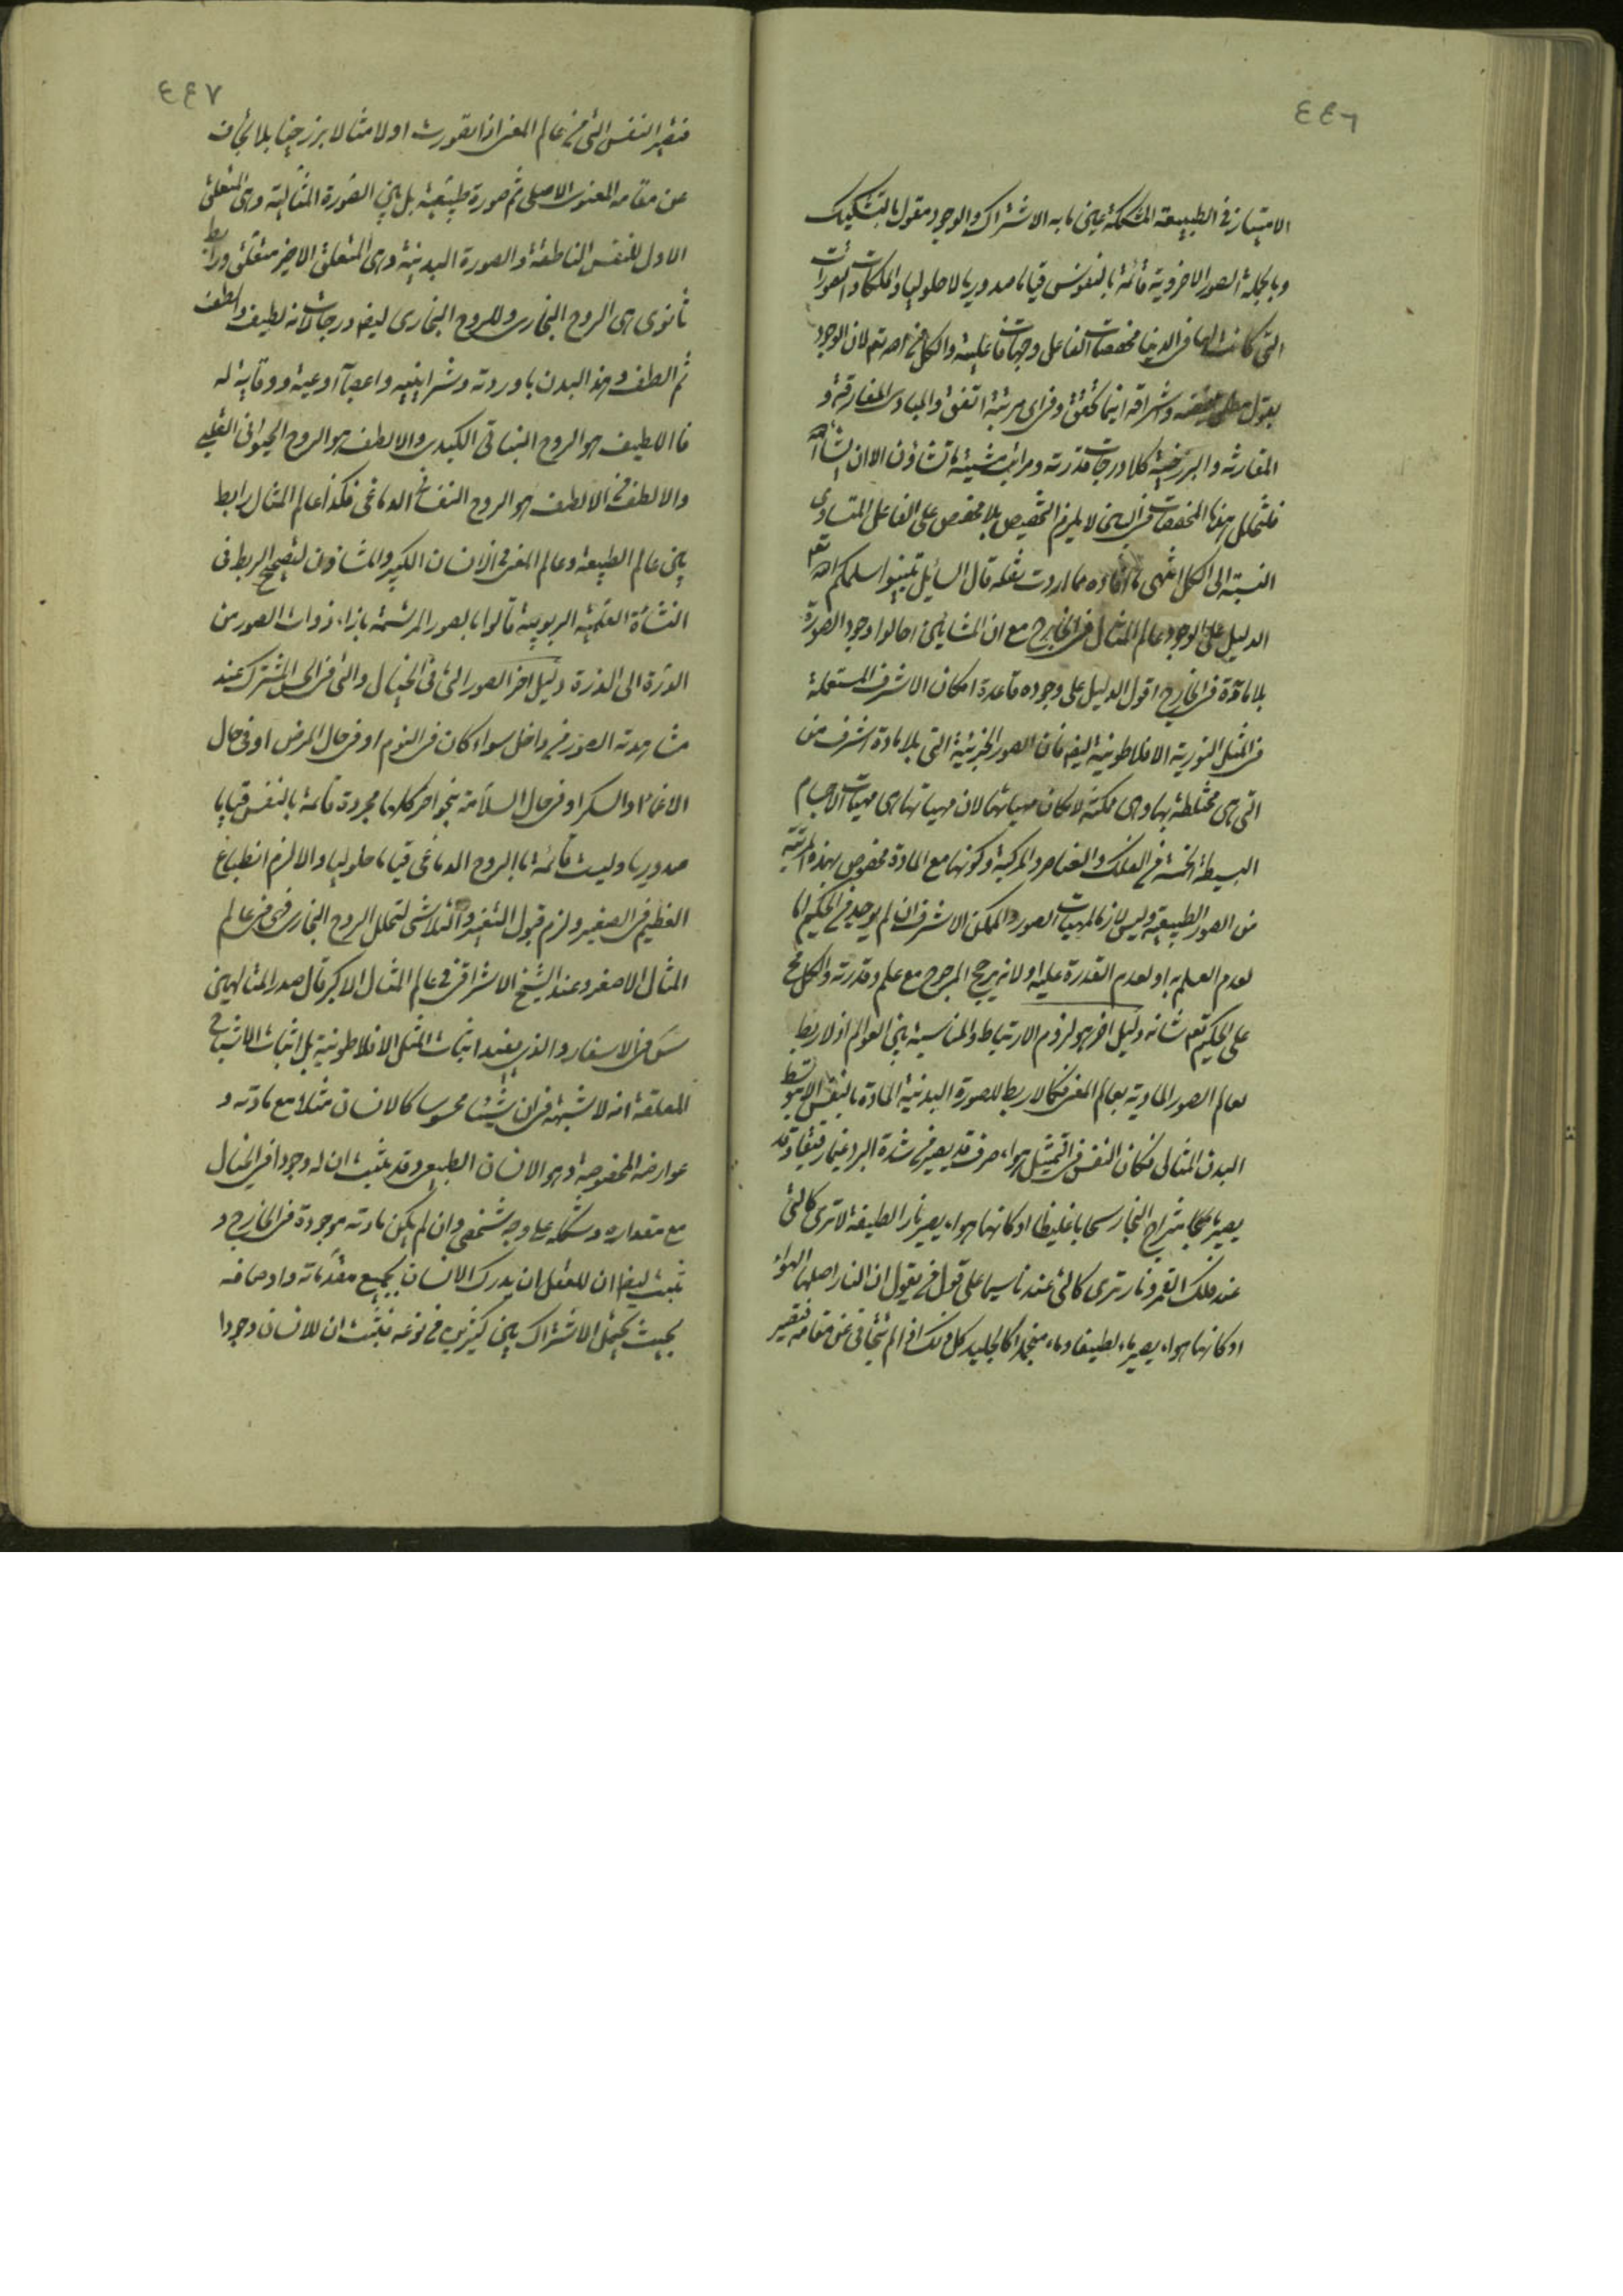 ٤٤٦
الامتياز فى الطبيعة المشككة عين ما به الاشتراك والوجود مقول بالتشكيك
وبالجملة الصور الاخروية قائمة بالنفوس قياما صدوريا لا حلوليا والملكات والتصورات
التى كانت لها فى الدنيا مخصصات الفاعل وجهات فاعلية والكل من الله تعم لان الوجود
يقول مطلق واشراقه اينما تحقق وفى اى مرتبة اتفق والمبادى المفارقة و
المقارنة والبرزخية كلا درجات قدرته ومراتب مشيته ما تشاؤن الا ان يشاء الله
فلتخلل هذه المخصصات فى البين لا يلزم التخصيص بلا مخصص على الفاعل المتساوى
النسبة الى الكل انتهى ما افاده مما اردت نقله قال السائل بينوا سلمكم الله تعم
الدليل على الوجود عالم المثال فى الخارج مع ان المشائين احالوا وجود الصورة
بلا مادة فى الخارج اقول الدليل على وجوده قاعدة امكان الاشرف المستعملة
فى المثل النورية الافلاطونية ايضا فان الصور الجزئية التى بلا مادة اشرف من
التى هى مختلطة بها وهى ممكنة لامكان مهياتها لان مهياتها هى مهيات الاجسام
البسيطة الخمسة من الفلك والعناصر والمركبة وكونها مع المادة مخصوص بهذه المرتبة
من الصور الطبيعية وليس لازما لمهيات الصور والممكن الاشرف ان لم يوجد من الحكيم اما
لعدم العلم به او لعدم القدرة عليه او لانه يرجح المرجوح مع علمه وقدرته والكل مح
على الحكيم تعم شانه دليل اخر هو لزوم الارتباط والمناسبة بين العوالم اذ لا ربط
لعالم الصور المادية بعالم المعنى كما لا ربط للصورة البدنية المادة بالنفس الا بتوسط
البدن المثالى فكان النفس فى التمثيل هواء صرف قد يصير من شدة البرد غيما رقيقا وقد
يصير بامتزاج البخار سحابا غليظا او كانها هواء يصير نارا لطيفة لا ترى كالتى
عند فلك القمر ونار ترى كالتى عندنا سيما على قول من يقول ان النار اصلها الهواء
او كانها هواء يصير ماء لطيفا وماء منجمدا كالجليد كل ذلك اذا لم يتجاف عن مقامه فتصير
٤٤٧
فتصير النفس التى من عالم المعنى اذا تصورت اولا مثالا برزخيا بلا تجاف
عن مقامه المعنوى الاصلى ثم صورة طبيعية بل بين الصورة المثالية وهى المتعلق
الاول للنفس الناطقة والصورة البدنية وهى المتعلق الاخير متعلق ورابط
ثانوى هى الروح البخارى وللروح البخارى ايضا درجات لانه لطيف والطف
ثم الطف وهذا البدن باوردته وشرايينه واعصابه اوعية ووقاية له
فاللطيف هو الروح النباتى الكبدى والالطف هو الروح الحيوانى القلبى
والالطف من الالطف هو الروح النفسانى الدماغى فكذا عالم المثال رابط
بين عالم الطبيعة وعالم المعنى فى الانسان الكبير والمشاؤن لتصحيح الربط فى
النشأة العلمية الربوبية قالوا بالصور المرتسمة بازاء ذوات الصور من
الذرة الى الذرة دليل اخر الصور التى فى الخيال والتى فى الحس المشترك عند
مشاهدته الصور من داخل سواء كان فى النوم او فى حال المرض او فى حال
الاغماء والسكر او فى حال السلامة بنحو اخر كلها مجردة قائمة بالنفس قياما
صدوريا وليست قائمة بالروح الدماغى قياما حلوليا والا لزم انطباع
العظيم فى الصغير ولزم قبول التغير والتلاشى لتحلل الروح البخارى فهى فى عالم
المثال الاصغر وعند الشيخ الاشراقى فى عالم المثال الاكبر قال صدر المتالهين
س فى الاسفار والذى يفيد اثبات المثل الافلاطونية بل اثبات الاشباح
المعلقة انه لا شبهة فى ان شيئا محسوسا كالانسان مثلا مع مادته و
عوارضه المخصوصة وهو الانسان الطبيعى وقد يثبت ان له وجودا فى الخيال
مع مقداره وشكله على وجه شخصى وان لم يكن مادته موجودة فى الخارج و
ثبت ايضا ان للعقل ان يدرك الانسان بجميع مقدماته واوصافه
بحيث يحتمل الاشتراك بين كثيرين من نوعه فثبت ان للانسان وجودا